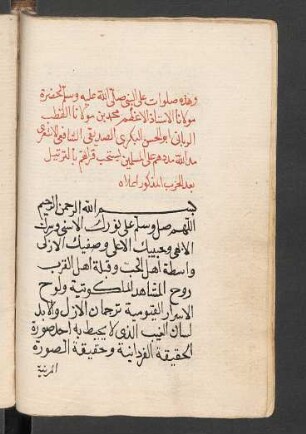 وهذه صلوات على النبي صلى الله عليه وسلم لحضرة
مولانا الاستاذ الاعظم محمد بن مولانا القطب
الرباني ابو الحسن البكري الصديقي الشافعي الاشعري
مد الله مدده على المسلمين يستحب قراتهم بالترتيل
بعد الحزب المذكور اعلاه
بسم الله الرحمن الرحيم
اللهم صل وسلم على نورك الاسنى وسرك
الابهى وحبيبك الاعلى وصفيك الازكى
واسطة اهل الحب وقبلة اهل القرب
روح المشاهد الملكوتية ولوح
الاسرار القيومية ترجمان الازل والابد
لسان الغيب الذي لا يحيط به احد صورة
الحقيقة الفردانية وحقيقة الصورة
المزينة